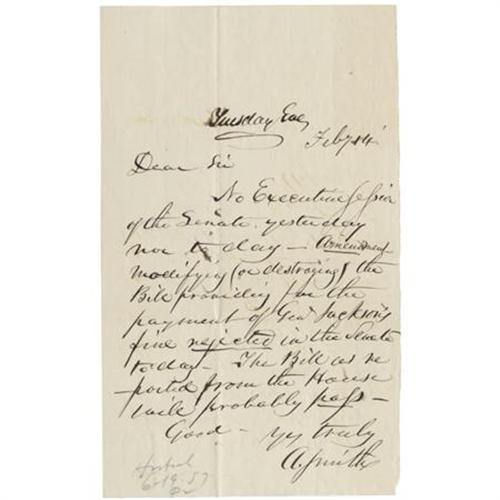 Tuesday Eve,
Feby 14
Dear Sir
No Executive Session
of the Senate yesterday
nor to day — Amendment
modifying (or destroying) the
Bill providing for the
payment of Genl Jackson's
fine rejected in the Senate
to day — The Bill as re
ported from the House
will probably pass —
Good — yrs truly
A Smith
6-19-57